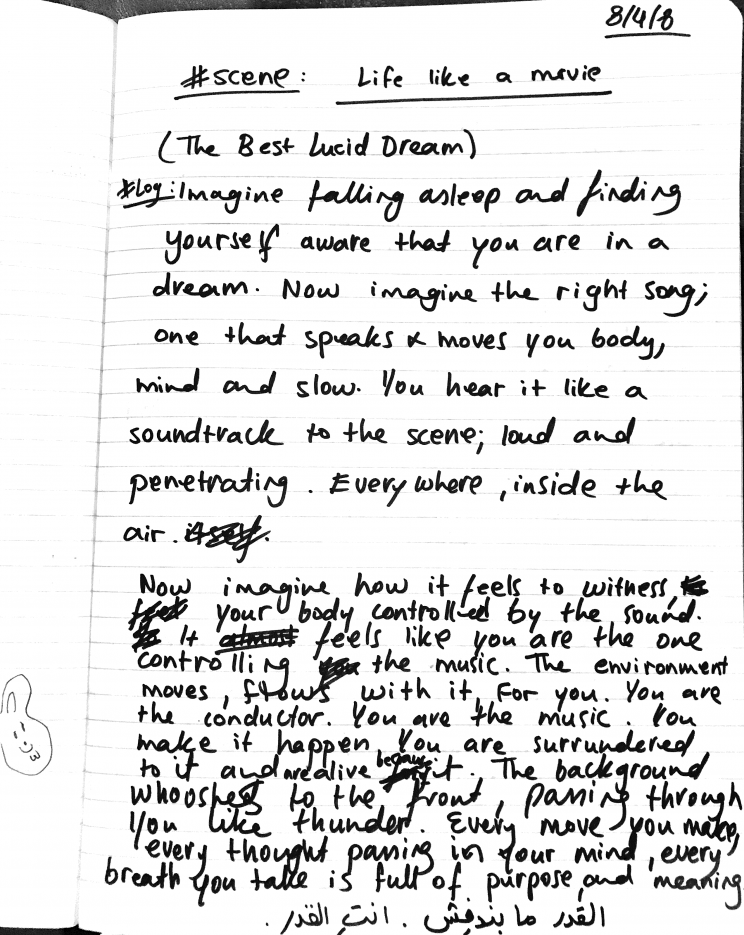 8/4/8
#scene: Life like a movie
(The Best Lucid Dream)
#Log: Imagine falling asleep and finding
yourself aware that you are in a
dream. Now imagine the right song;
one that speaks & moves you body,
mind and slow. You hear it like a
soundtrack to the scene; loud and
penetrating. Everywhere, inside the
air. itself.
Now imagine how it feels to witness
your body controlled by the sound.
It almost feels like you are the one
controlling you the music. The environment
moves, flows with it, For you. You are
the conductor. You are the music. You
make it happen. You are surrundered
to it and are alive because it. The background
whooshes to the front, passing through
You like thunder. Every move you make,
every thought passing in your mind, every
breath you take is full of purpose and meaning
القدر ما بندفش. انتِ القدر.